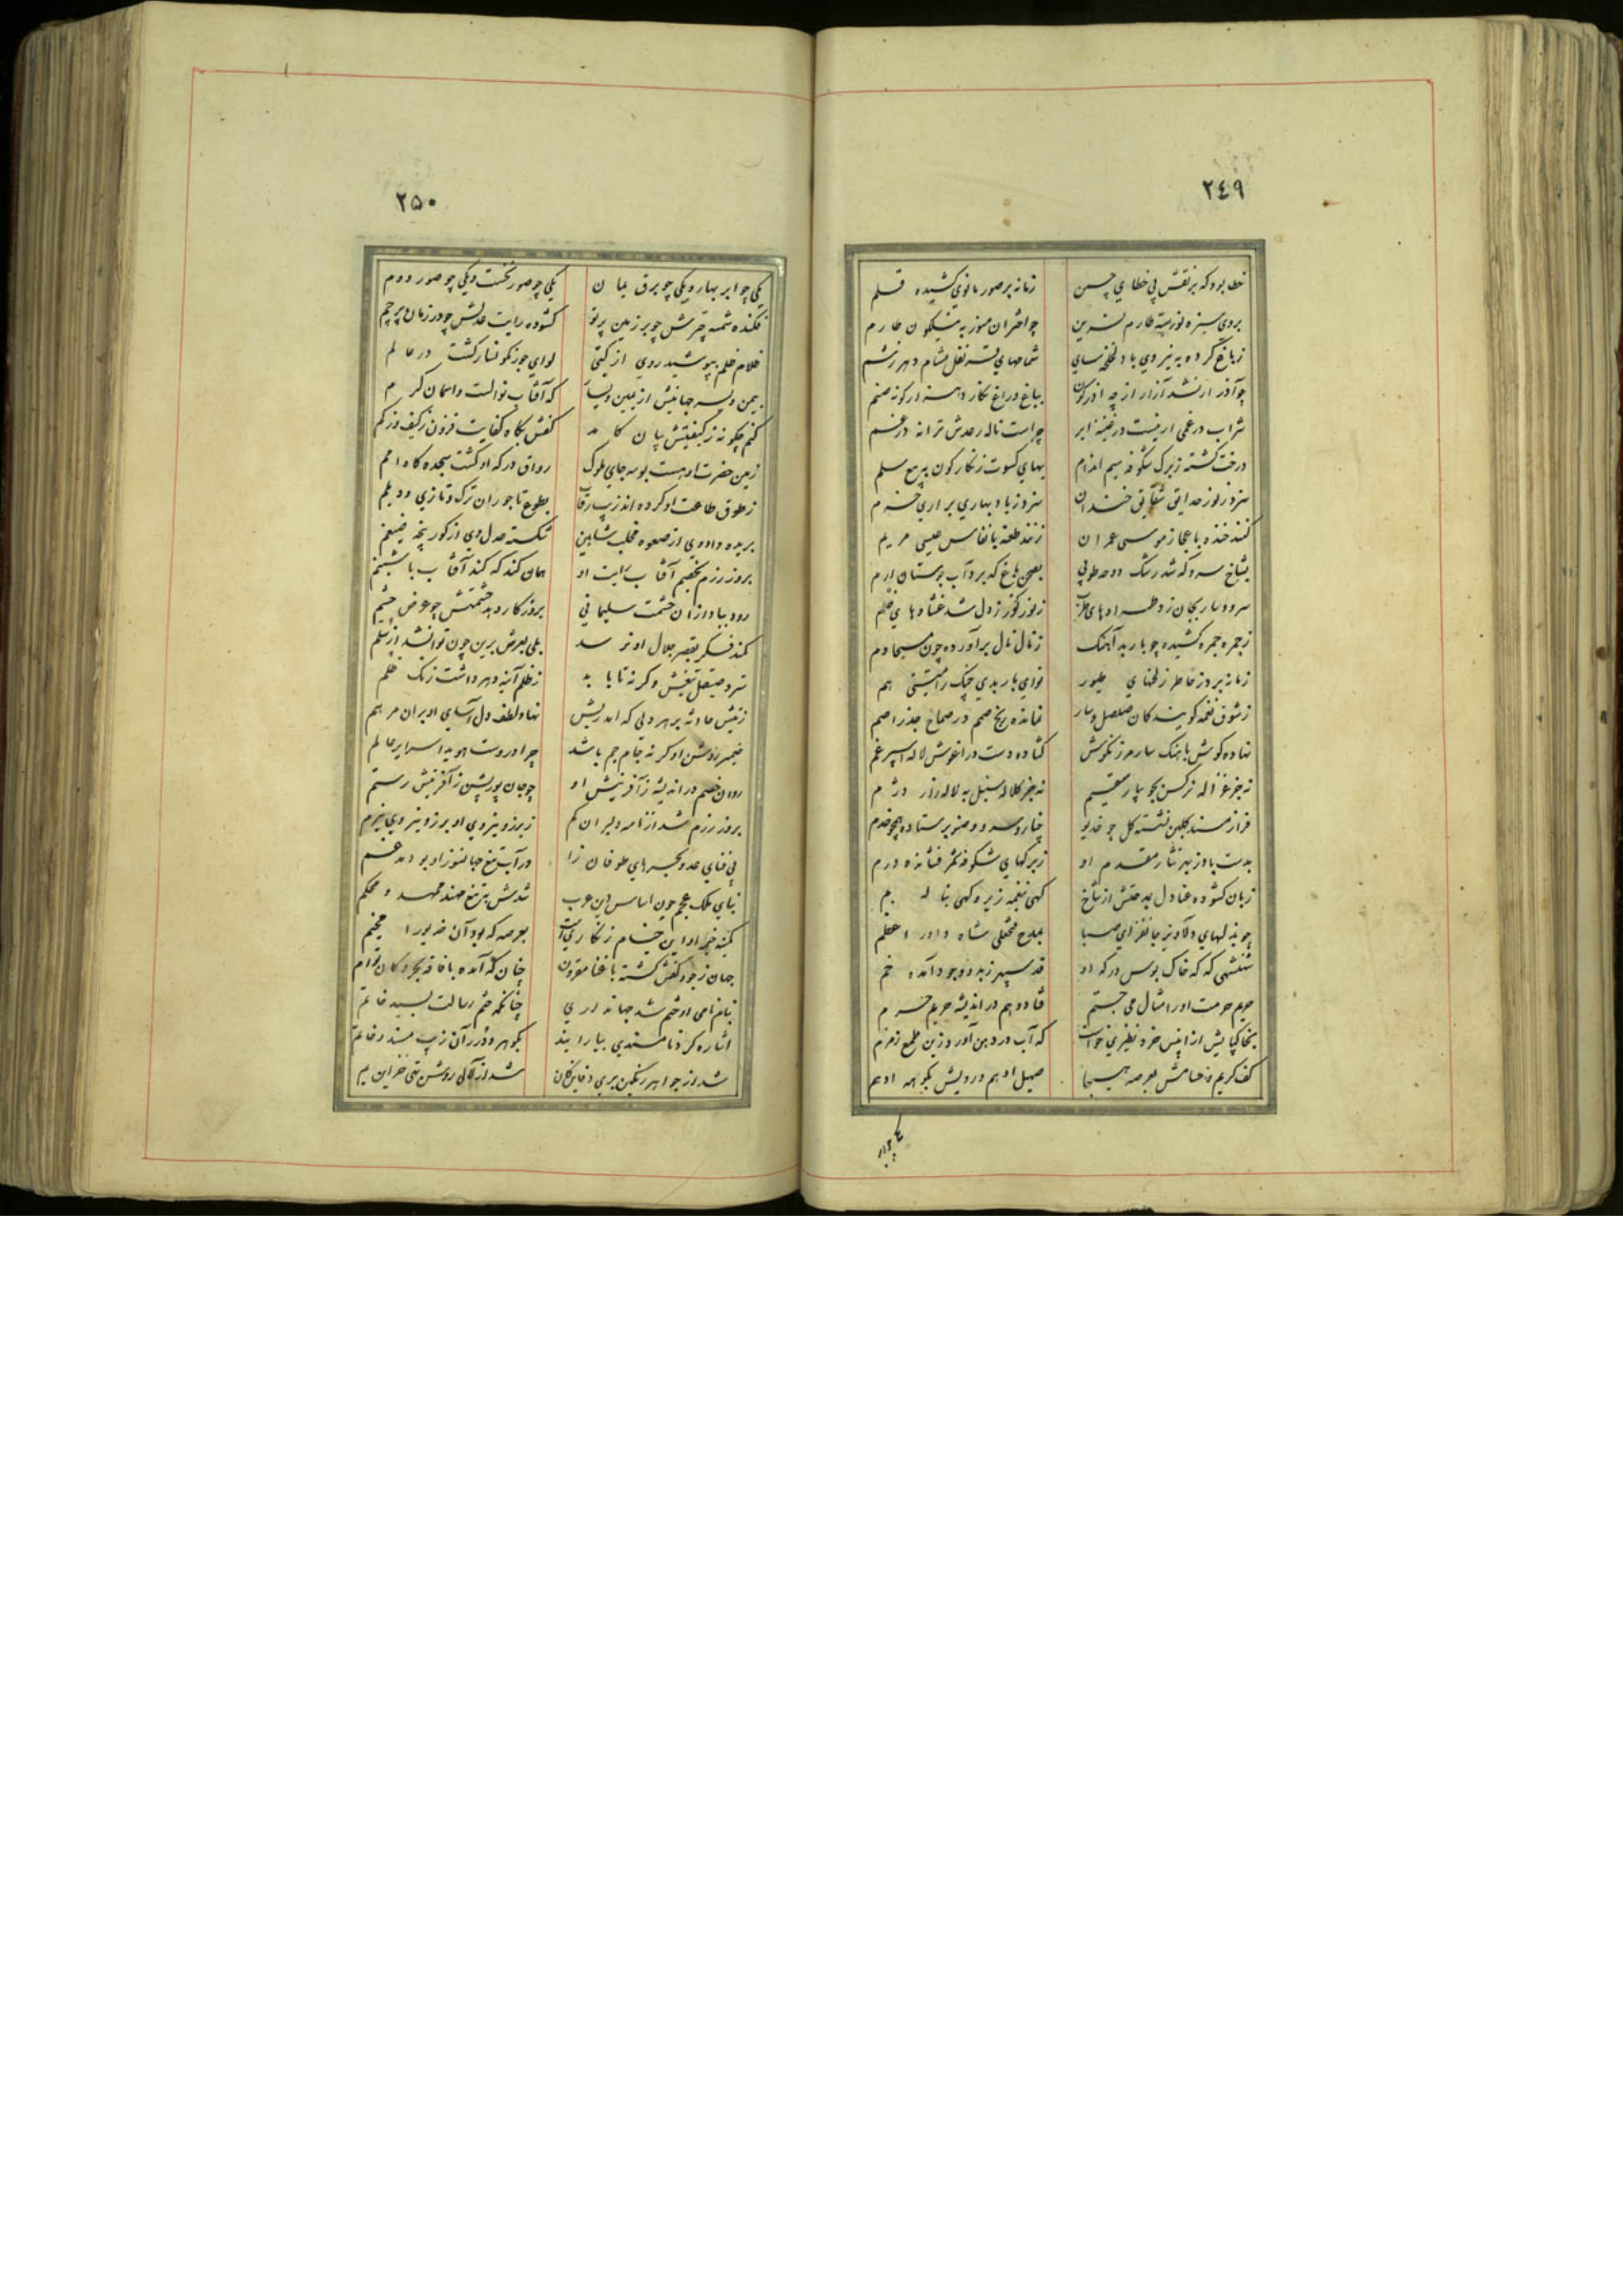 ٢٤٩
خطا بود که بر نقش بی خطای چمن زمانه بر صور مانوی کشیده قلم
بروی سبزه نورسته طارم نسرین چو اختران منور به نیلکون طارم
زباغ کرده به نیروی باد لخلخه سای
چو آذر ار نشد آزار از چه آذرکون بباغ و راغ نکارد هزار کونه صنم
شراب درغمی ار نیست در قنینه ابر چراست ناله رعدش ترانه درغم
درخت کشته زبرک شکوفه سیم اندام بهای کسوت زنکارکون به بیع سلم
سزد ز نور حدایق شقایق خندان سزد ز باد بهاری براری خرم
کنند خنده باعجاز موسی عمران زنند طعنه بانفاس عیسی مریم
بشاخ سرو که شد رشک دوحه طوبی بصحن باغ که برد آب بوستان ارم
سرود سار بجان زد
زنای نای برآورده چون مسیحا دم
زمانه برد ز خاطر ز لحنهای طیور نوای باربدی چنک رامتینی هم
زشوق نغمه کویندکان صلصل و سار نمانده رنج صمم در صماخ جذر اصم
نهاده کوش باهنک سار مرزنکوش کشاده دست در آغوش لاله اسپرغم
نه جز غزاله نرکس بجویبار سقیم نه جز کلاله سنبل به لاله زار درهم
فراز مسند کلبن نشسته کل چو خدیو چنار و سرو و صنوبر ستاده همچو خدم
بدست باد ز بهر نثار مقدم او ز برکهای شکوفه فشانده درم
زبان کشوده عنادل بمدحتش از شاخ کهی بنغمه زیر و کهی بناله بم
چو بذله‌های دلاویز جانفزای صبا بمدح محفلی شاه داور اعظم
شهنشهی که که خاک بوس درکه او قد سپهر ز بدو وجود آمده خم
حریم حرمت او را مثال می جستم فتاد وهم در اندیشه حریم حرم
بخاکپایش از انیس خرد نظیری خواست که آب در دهن آورد زین طمع زمزم
کف کریم و حسامش بعرصه هیجا صهیل ادهم و رویش بکوهه ادهم
یکی چو ابر
٢٥٠
یکی چو ابر بهار و یکی چو برق یمان یکی چو صور نخست و یکی چو صور دوم
فکنده شمسه چترش چو بر زمین پرتو کشوده رایت عدلش چو در زمان پرچم
ظلام ظلم بپوشید روی از کیتی لوای جور نکونسار کشت در عالم
بیمن و یسر جهانیش از یمین و یسار که آفتاب نوالست و آسمان کرم
کنم چکونه ز کیفیتش بیان کامد کفش بکاه کفایت فزون ز کیف و ز کم
زمین حضرت او هست بوسه جای ملوک رواق درکه او کشت سجده کاه امم
ز طوق طاعت او کرده اند زیب رقاب بطوع تاجوران ترک و تازی و دیلم
بریده داد وی از صعوه مخلب شاهین شکسته عدل وی از کور پنجه ضیغم
بروز رزم بخصم آفتاب رایت او همان کند که کند آفتاب با شبنم
رود بباد از آن حشمت سلیمانی بروز کار دهد حشمتش چو عرض حشم
کمند فکر بقصر جلال او نرسد بلی بعرش برین چون توان شد از سلم
سترد صیقل تیغش وکرنه تا باید ز ظلم آئینه دهر داشت زنک ظلم
ز نیش حادثه بر هر دلی که آمد ریش نهاد لطف دل آسای او بر آن مرهم
ضمیر روشن او کرنه جام جم باشد چرا دروست هویدا سرایر عالم
روان خصم در اندیشه ز آفرینش او چو جان پور پشن ز آفرینش رستم
بروز رزم شد از نامه دلیران کم ز برز و نیروی او برز و نیروی نیرم
پی فنای عدو لجه‌های طوفان زا در آب تیغ جهانسوز او بود مدغم
بنای ملک عجم چون اساس دین عرب شدش بتیغ مهند ممهد و محکم
کمینه خیمه او این خیام زنکاریست بعرصه که بود آن خدیو را مخیم
جهان ز جود کفش کشته با غنا مقرون چنان که آمده با فاقه بحر و کان توأم
بنام نامی او ختم شد جهانداری چنانکه ختم رسالت بسید خاتم
اشاره کرد تا مسندی بیارایند بکوهر و درر آن زیب مسند و خاتم
شد از جواهر رنکین بری دفاین کان شد از لآلی روشن تهی خزاین یم